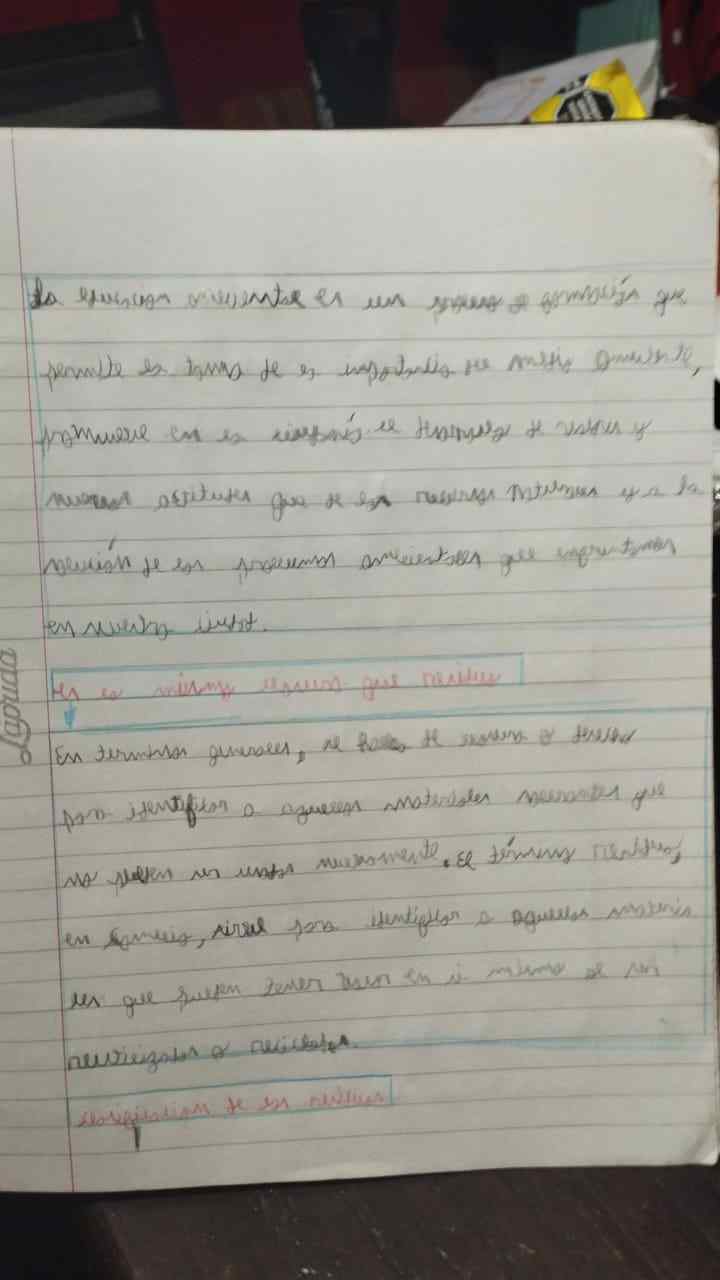 La educacion ambiental es un proceso de formación que
permite la toma de la importancia del medio ambiente,
promueve en la el desarrollo de valores y
nuevas actitudes que de los recursos naturales y a la
solución de los problemas ambientales que enfrentamos
en nuestra
Es lo mismo que residuo
En terminos generales, se habla de o desecho
para identificar a aquellos materiales sobrantes que
no pueden ser usados nuevamente. El término residuo,
en cambio, sirve para identificar a aquellos materia
les que pueden tener valor en si mismo al ser
reutilizados o reciclados.
clasificacion de los residuos
Laprida